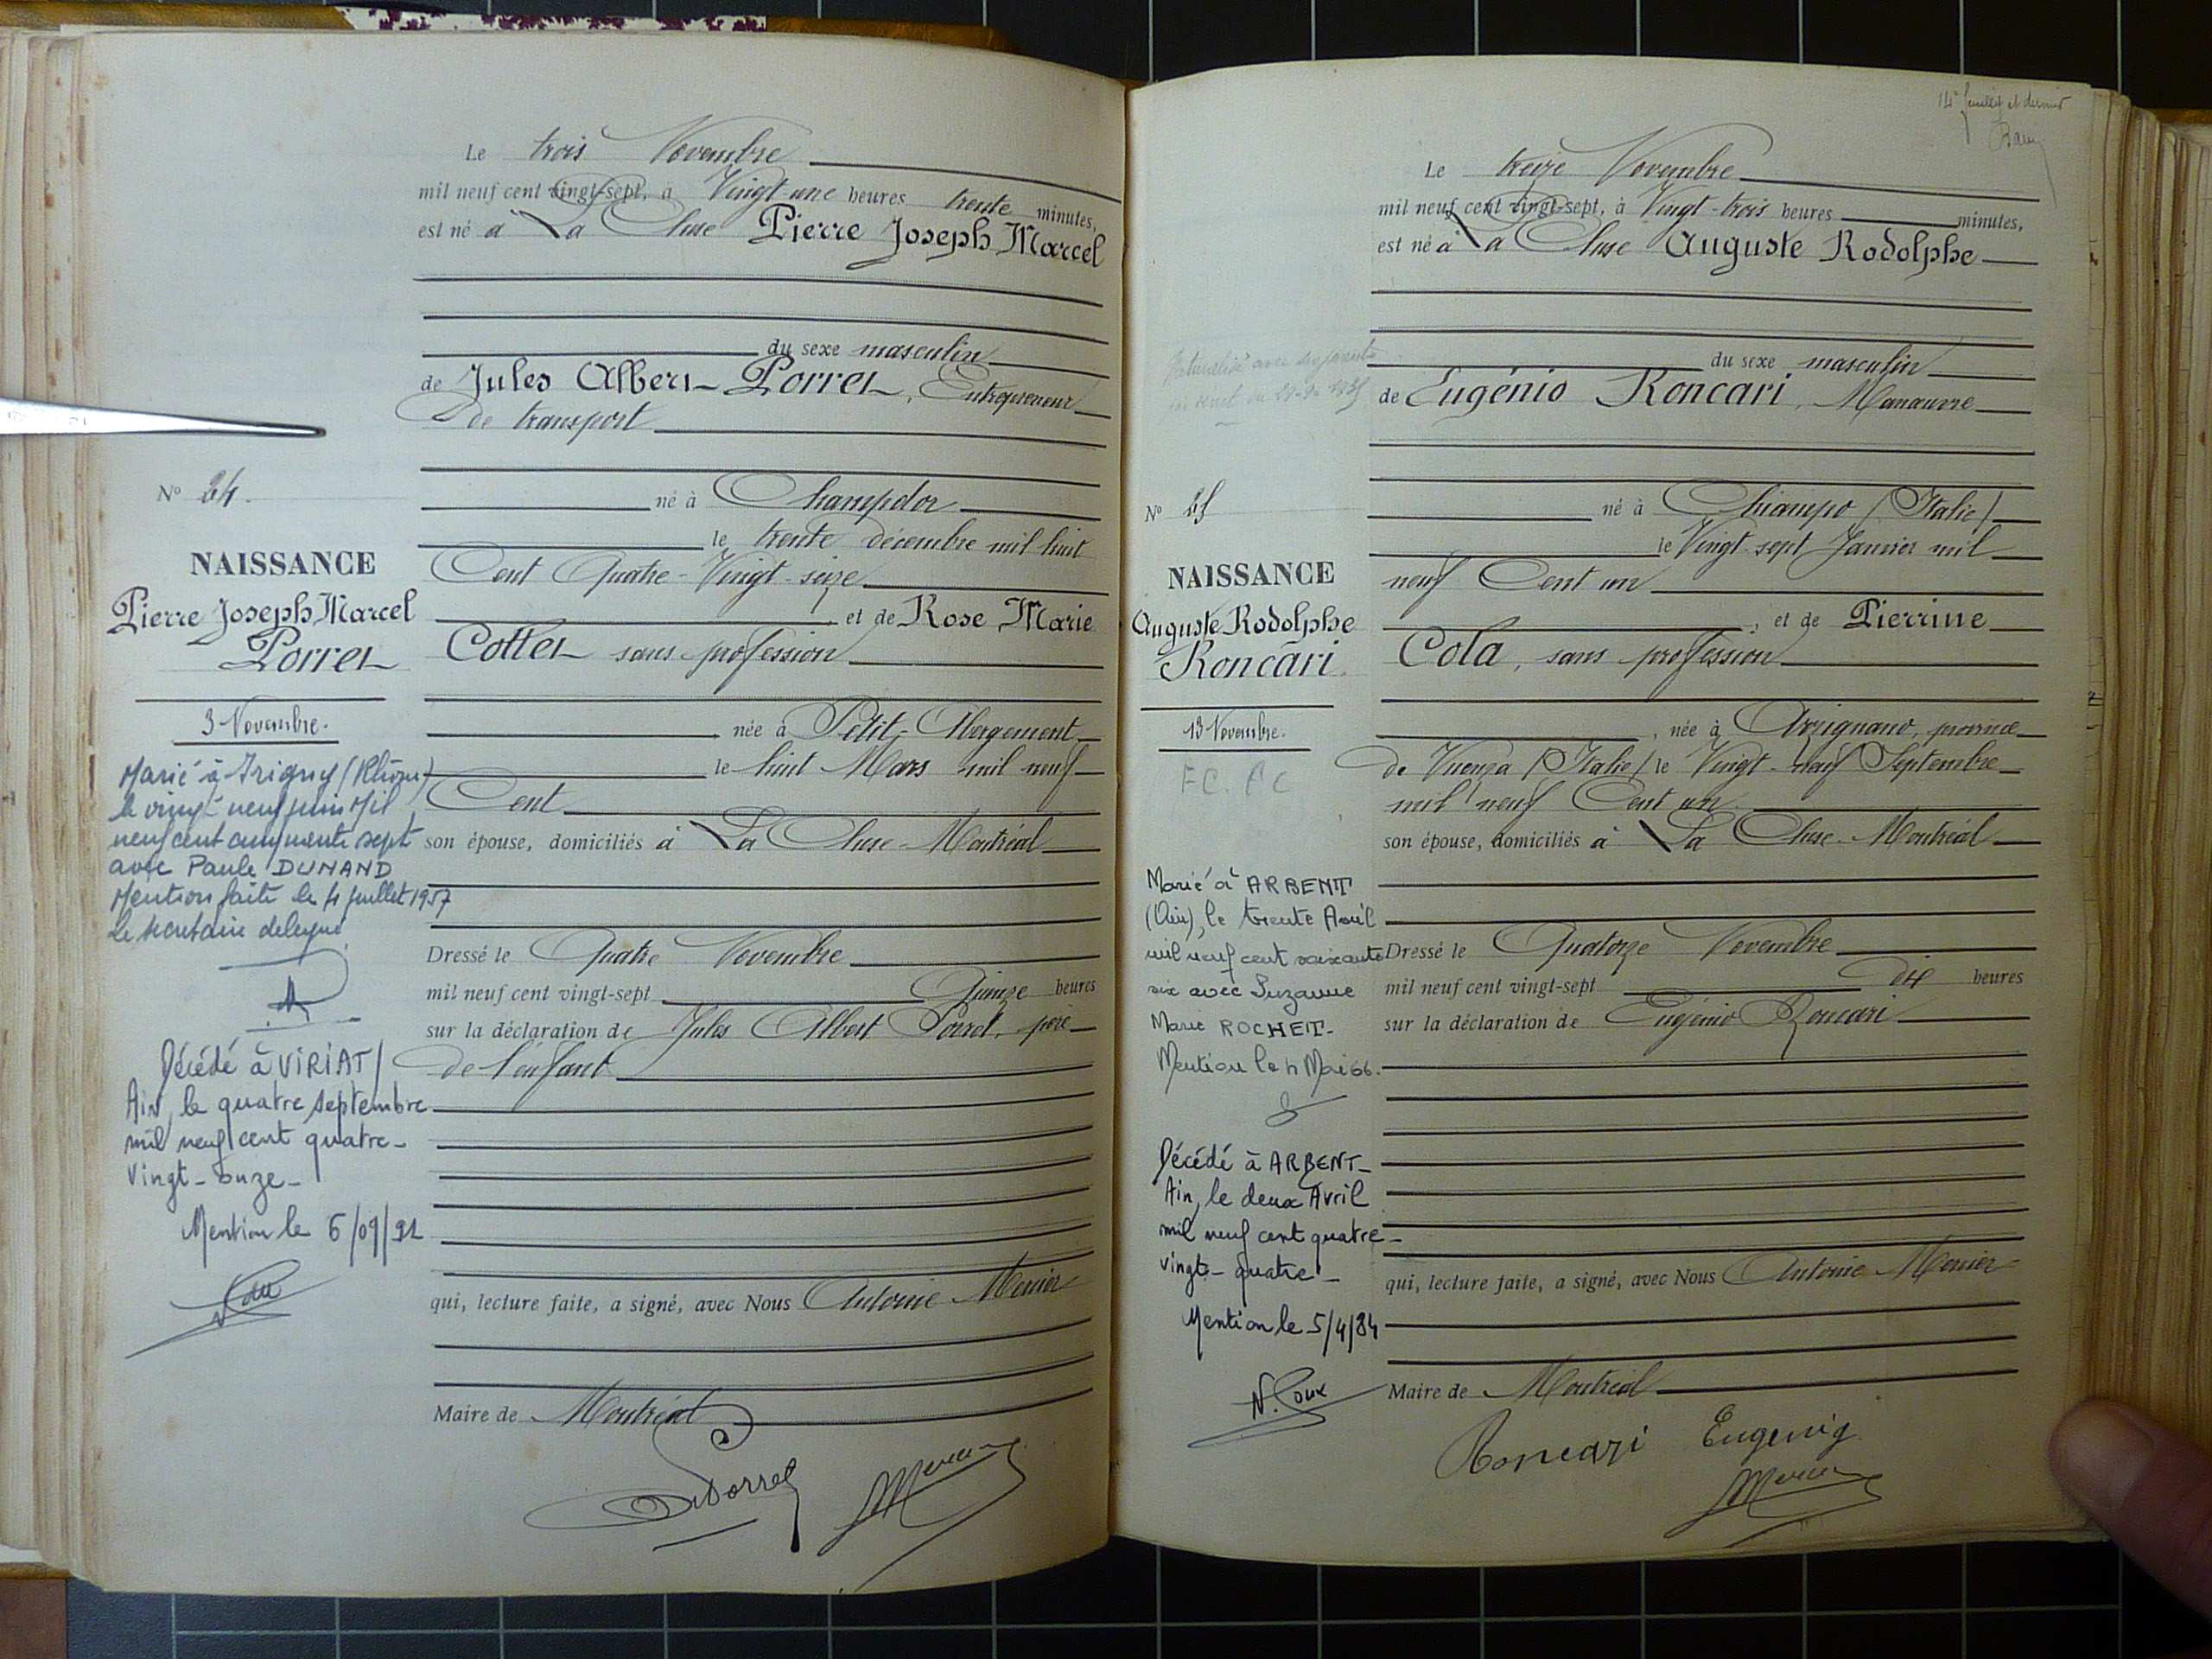 Le trois Novembre
mil neuf cent vingt-sept, à Vingt une heures trente minutes,
est né à La Cluse Pierre Joseph Marcel
du sexe masculin
de Jules Albert Porret, Entrepreneur
de transport
né à Champdor
le trente décembre mil huit
Cent Quatre-Vingt-seize
et de Rose Marie
Cottet sans profession
née à Petit-Abergement
le huit Mars mil neuf
Cent
son épouse, domiciliés à La Cluse-Montréal
Dressé le Quatre Novembre
mil neuf cent vingt-sept Quinze heures
sur la déclaration de Jules Albert Porret, père
de l'enfant
qui, lecture faite, a signé, avec Nous Antoine Mercier
Maire de Montréal
Porret
N° 24.
NAISSANCE
Pierre Joseph Marcel
Porret
3 Novembre.
Marié à Irigny (Rhône)
le vingt-neuf juin mil
neuf cent cinquante sept
avec Paule DUNAND
Mention faite le 4 juillet 1957
Le secrétaire délégué
Décédé à VIRIAT
Ain, le quatre septembre
mil neuf cent quatre-
vingt-onze-
Mention le 6/09/91
14e feuillet et dernier
Le treize Novembre
mil neuf cent vingt-sept, à Vingt-trois heures minutes,
est né à La Cluse Auguste Rodolphe
du sexe masculin
de Eugénio Roncari, Manœuvre
né à Chiampo (Italie)
le Vingt-sept Janvier mil
neuf Cent un
, et de Pierrine
Cola, sans profession
, née à Arzignano, province
de Vicenza (Italie) le Vingt-neuf Septembre
mil neuf Cent un
son épouse, domiciliés à La Cluse-Montréal
Dressé le Quatorze Novembre
mil neuf cent vingt-sept dix heures
sur la déclaration de Eugénio Roncari
qui, lecture faite, a signé, avec Nous Antoine Mercier
Maire de Montréal
Roncari Eugenio
Naturalisé avec ses parents
N° 25
NAISSANCE
Auguste Rodolphe
Roncari
13 Novembre.
Marié à ARBENT
(Ain), le trente Avril
mil neuf cent soixante
six avec Suzanne
Marie ROCHET-
Mention le 4 Mai 66.
Décédé à ARBENT-
Ain, le deux Avril
mil neuf cent quatre-
vingt-quatre-
Mention le 5/4/84